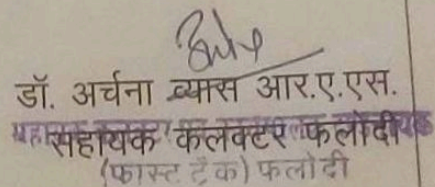 डॉ. अर्चना व्यास आर.ए.एस.
सहायक कलक्टर फलोदी
(फास्ट ट्रैक) फलोदी